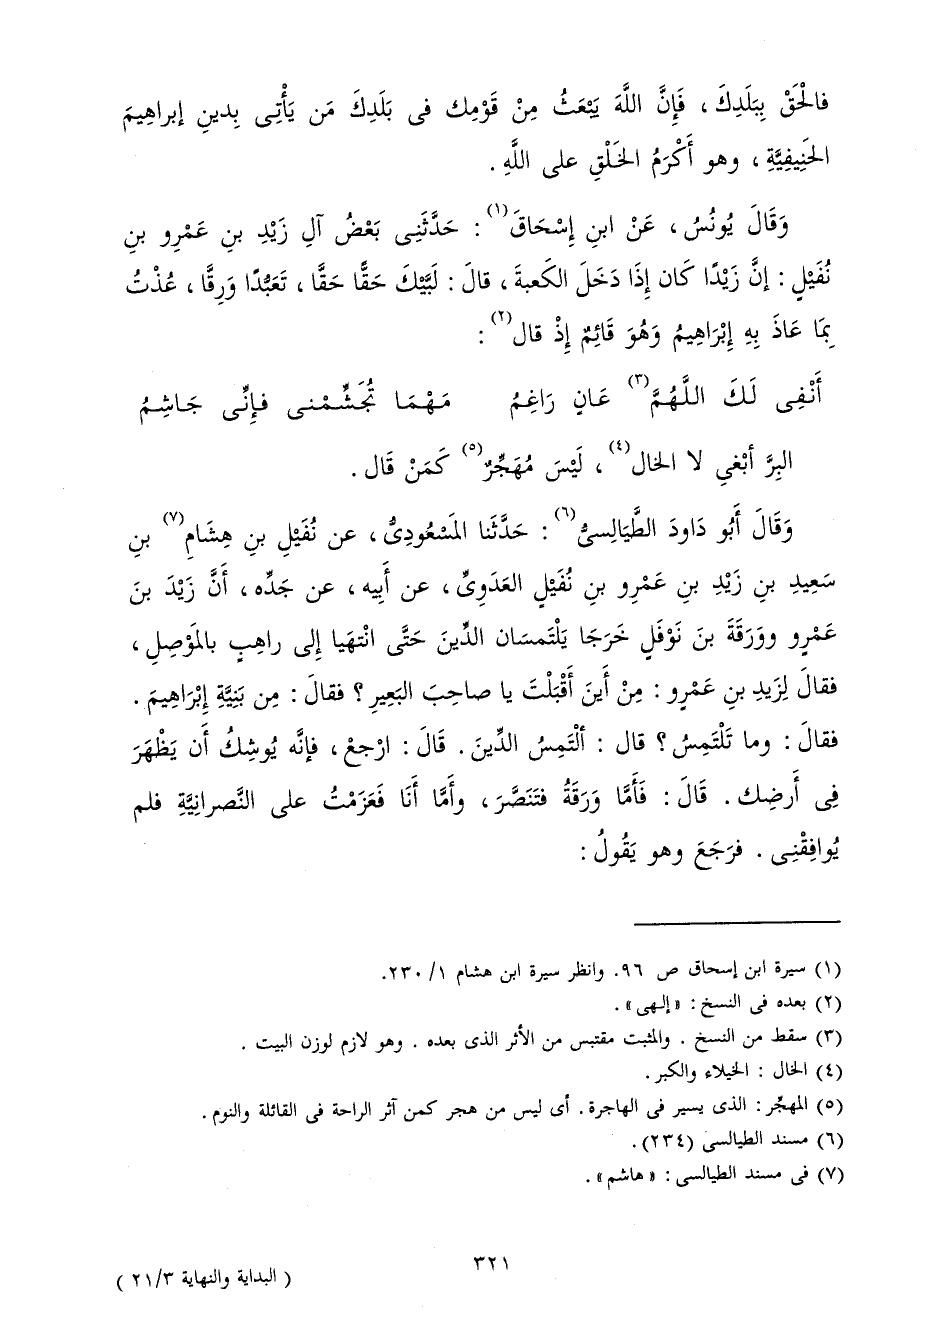 فالْحَقْ بِبَلَدِكَ ، فَإِنَّ اللَّهَ يَبْعَثُ مِنْ قَوْمِك فى بَلَدِكَ مَن يَأْتِى بِدينِ إبراهِيمَ
الحَنِيفِيَّةِ ، وهو أَكْرَمُ الخَلْقِ على اللَّهِ .
وَقَالَ يُونُسُ ، عَنْ ابنِ إِسْحَاقَ(١) : حَدَّثَنِى بَعْضُ آلِ زَيْدِ بنِ عَمْرِو بنِ
نُفَيْلٍ : إنَّ زَيْدًا كَان إِذَا دَخَلَ الكَعبةَ ، قالَ : لَبَّيْكَ حَقًّا حَقًّا ، تَعَبُّدًا وَرِقًّا ، عُذْتُ
بِمَا عَاذَ بِهِ إِبْرَاهِيمُ وَهُوَ قَائِمٌ إِذْ قال(٢) :
أَنْفِى لَكَ اللَّهُمَّ(٣) عَانٍ رَاغِمُ مَهْمَا تُجَشِّمْنى فإِنِّى جَاشِمُ
البِرَّ أبْغي لا الخال(٤) ، لَيْسَ مُهَجِّرٌ(٥) كَمَنْ قَال .
وَقَالَ أَبُو دَاودَ الطَّيَالِسىُّ(٦) : حَدَّثَنا المَسْعُودِىُّ ، عن نُفَيْلِ بنِ هِشَامِ(٧) بنِ
سَعِيدِ بنِ زَيْدِ بنِ عَمْرِو بنِ نُفَيْلٍ العَدَوِىِّ ، عن أَبِيه ، عن جَدِّه ، أَنَّ زَيْدَ بنَ
عَمْرٍو ووَرَقَةَ بنَ نَوْفَلٍ خَرَجَا يَلْتَمسَان الدِّينَ حَتَّى انْتهَيا إِلى راهِبٍ بالمَوْصِلِ ،
فقالَ لِزَيدِ بنِ عَمْرٍو : مِنْ أَينَ أَقْبَلْتَ يا صاحِبَ البَعيرِ ؟ فقالَ : مِن بَنِيَّةِ إِبْرَاهِيمَ .
فقالَ : وما تَلْتَمِسُ ؟ قال : ألْتَمِسُ الدِّينَ . قَالَ : ارْجعْ ، فإنَّه يُوشِكُ أن يَظْهَرَ
فِى أَرضِك . قَالَ : فَأَمَّا وَرَقَةُ فتَنَصَّرَ ، وأَمَّا أَنَا فَعَزَمْتُ على النَّصرانِيَّةِ فلم
يُوافِقْنِى . فرَجَعَ وهو يَقُولُ :
(١) سيرة ابن إسحاق ص ٩٦. وانظر سيرة ابن هشام ١/ ٢٣٠.
(٢) بعده فى النسخ : «إلهى» .
(٣) سقط من النسخ . والمثبت مقتبس من الأثر الذى بعده . وهو لازم لوزن البيت .
(٤) الخال : الخيلاء والكبر .
(٥) المهجِّر : الذى يسير فى الهاجرة . أى ليس من هجر كمن آثر الراحة فى القائلة والنوم .
(٦) مسند الطيالسى (٢٣٤) .
(٧) فى مسند الطيالسى : «هاشم» .
٣٢١
( البداية والنهاية ٢١/٣ )